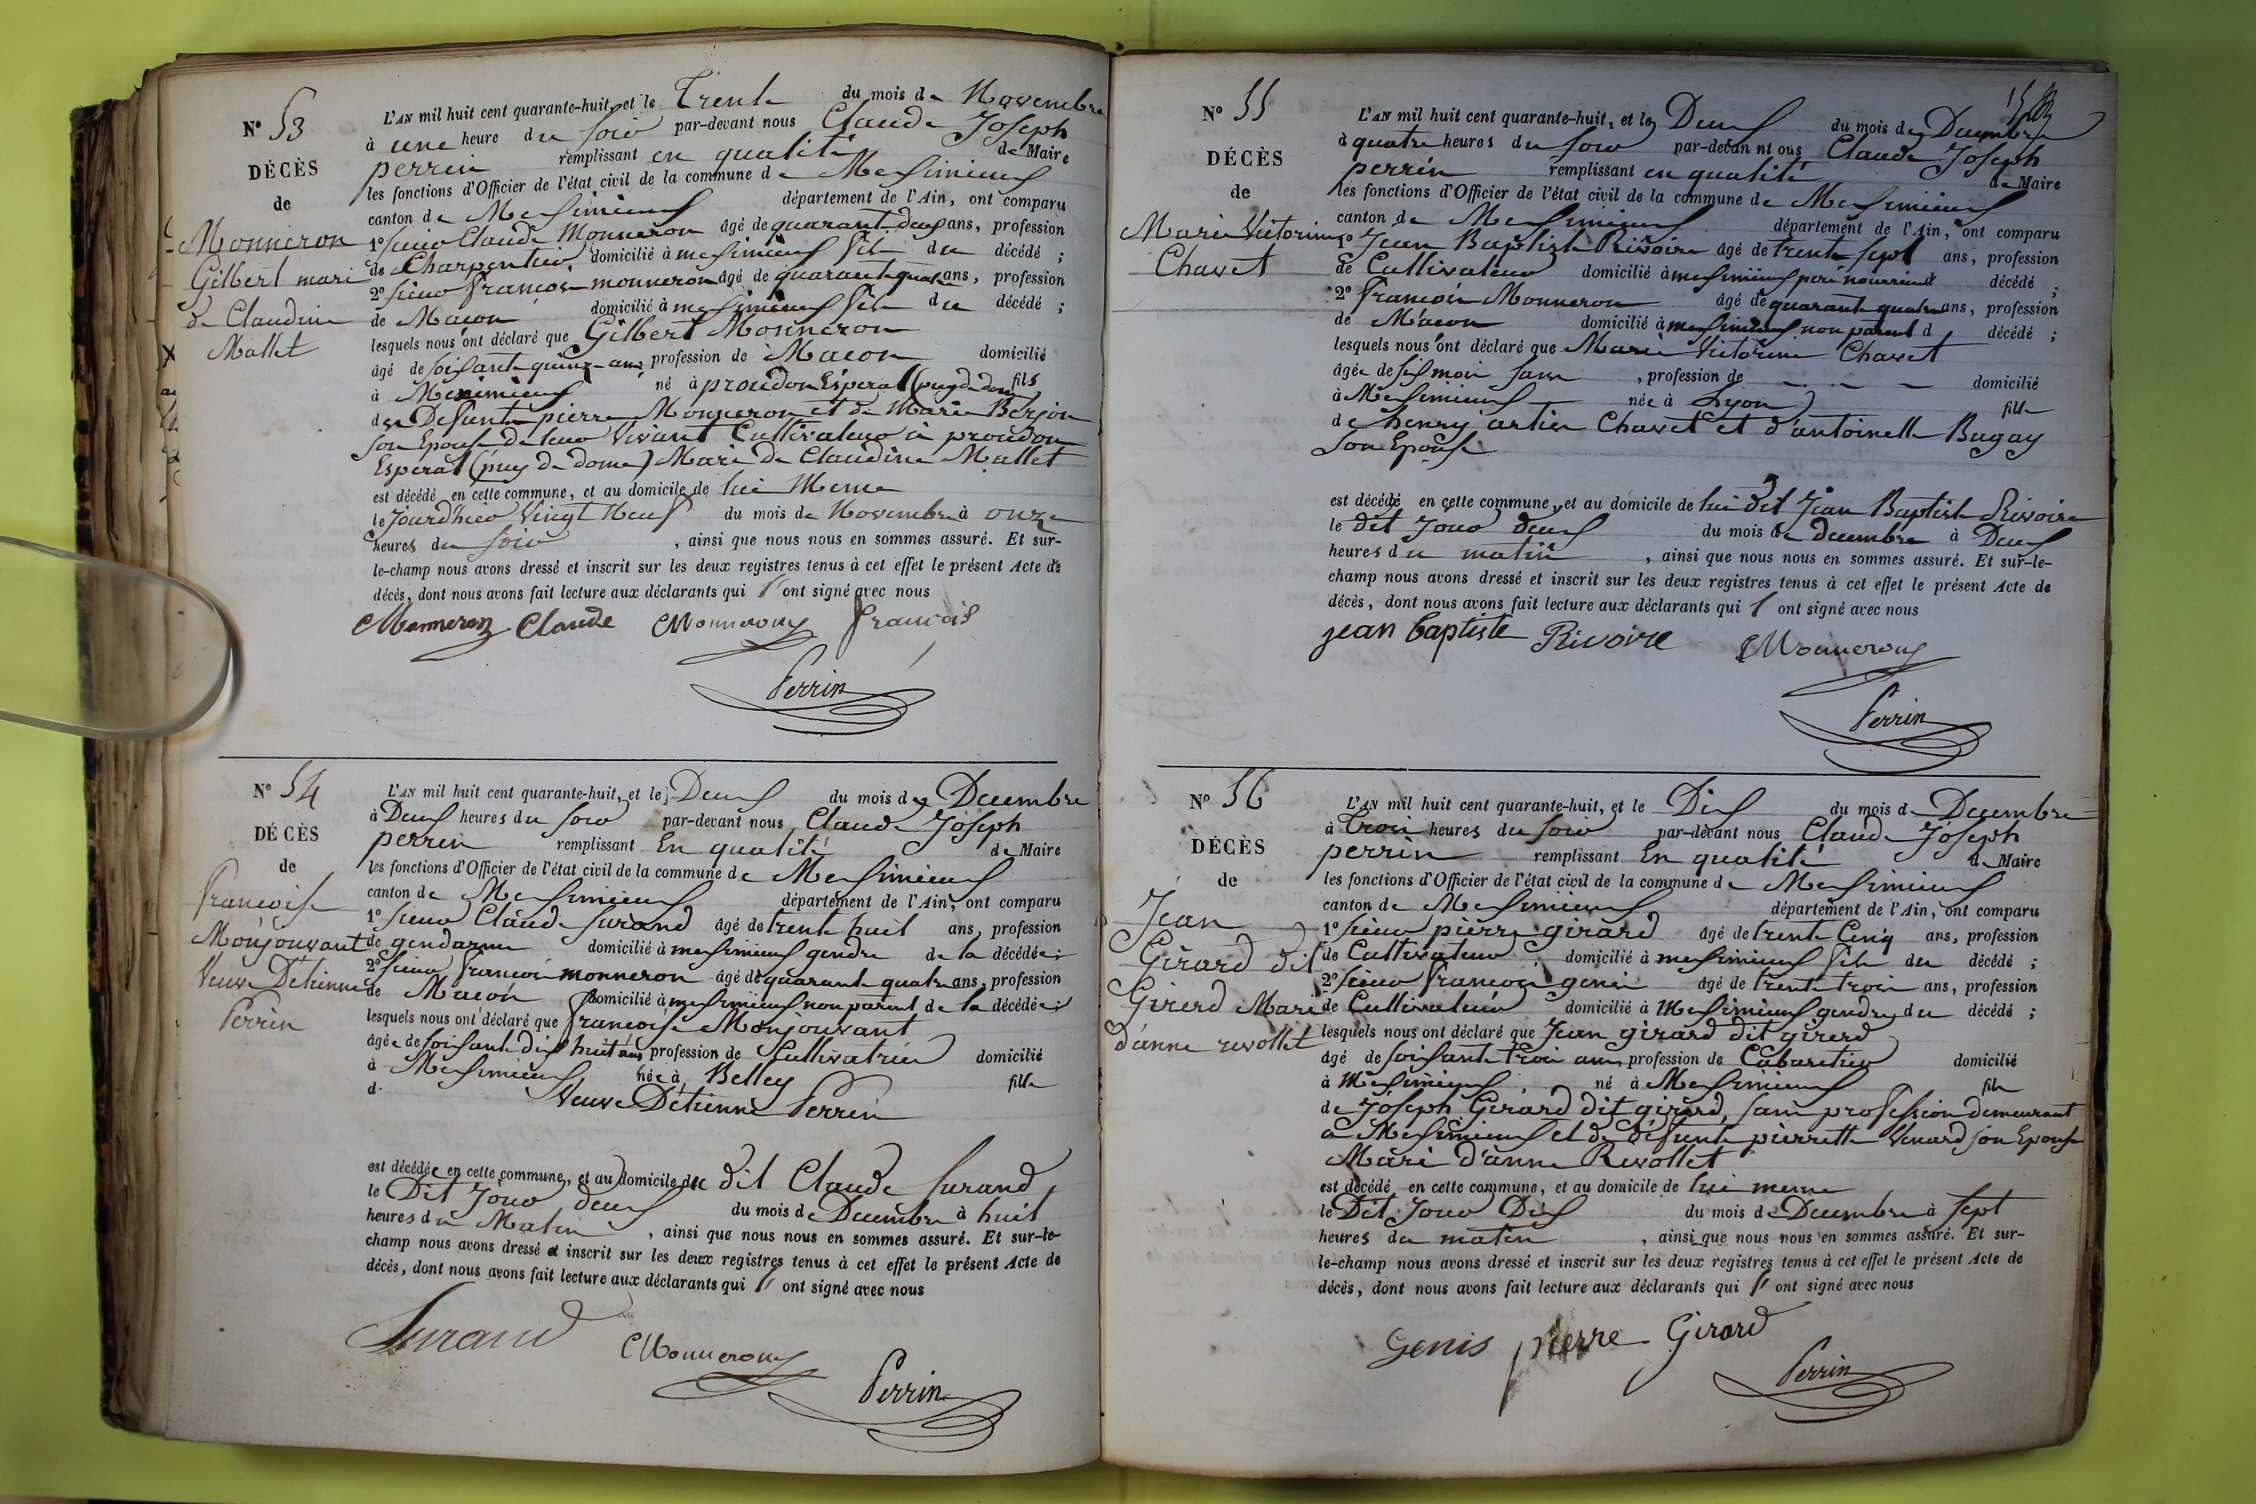 N° 53
DÉCÈS
de
Monneron
Gilbert mari
de Claudine
Mallet
L'AN mil huit cent quarante-huit, et le Trente du mois de Novembre
à une heure du soir par-devant nous Claude Joseph
perrin remplissant en qualité de Maire
les fonctions d'Officier de l'état civil de la commune de Meximieux
canton de Meximieux département de l'Ain, ont comparu
1° sieur Claude Monneron âgé de quarant deux ans, profession
de Charpentier domicilié à meximieux fils du décédé ;
2° sieur françois monneron âgé de quarante quatre ans, profession
de Maçon domicilié à meximieux fils du décédé ;
lesquels nous ont déclaré que Gilbert Monneron
âgé de soixante quinze ans profession de Macon domicilié
à Meximieux né à proudon Esperat (puy de dome fils
des Defunts pierre Monneron et de Marie Berjon
son Epouse de leur Vivant Cultivateur à proudon
Esperat (puy de dome) Mari de Claudine Mallet
est décédé en cette commune, et au domicile de lui Meme
le Jourd'hier Vingt Neuf du mois de Novembre à onze
heures du soir , ainsi que nous nous en sommes assuré. Et sur-
le-champ nous avons dressé et inscrit sur les deux registres tenus à cet effet le présent Acte de
décès, dont nous avons fait lecture aux déclarants qui ont signé avec nous
Monneron Claude Monneron françois
Perrin
N° 54
DÉCÈS
de
françoise
Monjouvant
Veuve D'étienne
Perrin
L'AN mil huit cent quarante-huit, et le Deux du mois de Decembre
à Deux heures du soir par-devant nous Claude Joseph
perrin remplissant En qualité de Maire
les fonctions d'Officier de l'état civil de la commune de Meximieux
canton de Meximieux département de l'Ain, ont comparu
1° sieur Claude Surand âgé de trente huit ans, profession
de gendarme domicilié à meximieux gendre de la décédée ;
2° sieur françois monneron âgé de quarante quatre ans, profession
de Macon domicilié à meximieux non parent de la décédée ;
lesquels nous ont déclaré que françoise Monjouvant
âgée de soixante dix huit ans profession de Cultivatrice domicilié
à Meximieux née à Belley fille
d Veuve D'étienne Perrin
est décédée en cette commune, et au domicile du dit Claude Surand
le Dit Jour deux du mois de Decembre à huit
heures du Matin , ainsi que nous nous en sommes assuré. Et sur-le-
champ nous avons dressé et inscrit sur les deux registres tenus à cet effet le présent Acte de
décès, dont nous avons fait lecture aux déclarants qui ont signé avec nous
Surand Monneron
Perrin
N° 55
DÉCÈS
de
Marie Victorine
Chavet
L'AN mil huit cent quarante-huit, et le Deux du mois de Decembre
à quatre heures du soir par-devan nt ous Claude Joseph
perrin remplissant en qualité de Maire
les fonctions d'Officier de l'état civil de la commune de Meximieux
canton de Meximieux département de l'Ain, ont comparu
1° Jean Baptiste Rivoire âgé de trente sept ans, profession
de Cultivateur domicilié à meximieux père nourricier décédé ;
2° françois Monneron âgé de quarante quatre ans, profession
de Macon domicilié à meximieux non parent d décédé ;
lesquels nous ont déclaré que Marie Victorine Chavet
âgée de six mois sans , profession de domicilié
à Meximieux née à Lyon fille
de henry artier Chavet et d'antoinette Bugay
son Epouse
est décédé en cette commune, et au domicile de lui dit Jean Baptiste Rivoire
le dit Jour deux du mois de decembre à Deux
heures du matin , ainsi que nous nous en sommes assuré. Et sur-le-
champ nous avons dressé et inscrit sur les deux registres tenus à cet effet le présent Acte de
décès, dont nous avons fait lecture aux déclarants qui ont signé avec nous
jean baptiste Rivoire Monneron
Perrin
N° 56
DÉCÈS
de
Jean
Girard dit
Girerd Mari
d'anne revollet
L'AN mil huit cent quarante-huit, et le Dix du mois de Decembre
à trois heures du soir par-devant nous Claude Joseph
perrin remplissant En qualité de Maire
les fonctions d'Officier de l'état civil de la commune de Meximieux
canton de Meximieux département de l'Ain, ont comparu
1° sieur pierre girard âgé de trente Cinq ans, profession
de Cultivateur domicilié à meximieux fils du décédé ;
2° sieur francois genis âgé de trente trois ans, profession
de Cultivateur domicilié à Meximieux gendre du décédé ;
lesquels nous ont déclaré que Jean girard dit girerd
âgé de soixante trois ans, profession de Cabaretier domicilié
à Meximieux né à Meximieux fils
de Joseph Girard dit girerd, sans profession demeurant
a Meximieux et de defunte pierrette Venard son Epouse
Mari d'anne Revollet
est décédé en cette commune, et au domicile de lui meme
le Dit Jour Dix du mois de Decembre à sept
heures du matin , ainsi que nous nous en sommes assuré. Et sur-
le-champ nous avons dressé et inscrit sur les deux registres tenus à cet effet le présent Acte de
décès, dont nous avons fait lecture aux déclarants qui ont signé avec nous
Genis pierre Girard
Perrin